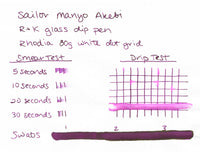 Sailor Manyo Akebi
R+K glass dip pen
Rhodia 80g white dot grid
Smear Test
Drip Test
5 seconds
10 seconds
20 seconds
30 seconds
Swabs
1
2
3